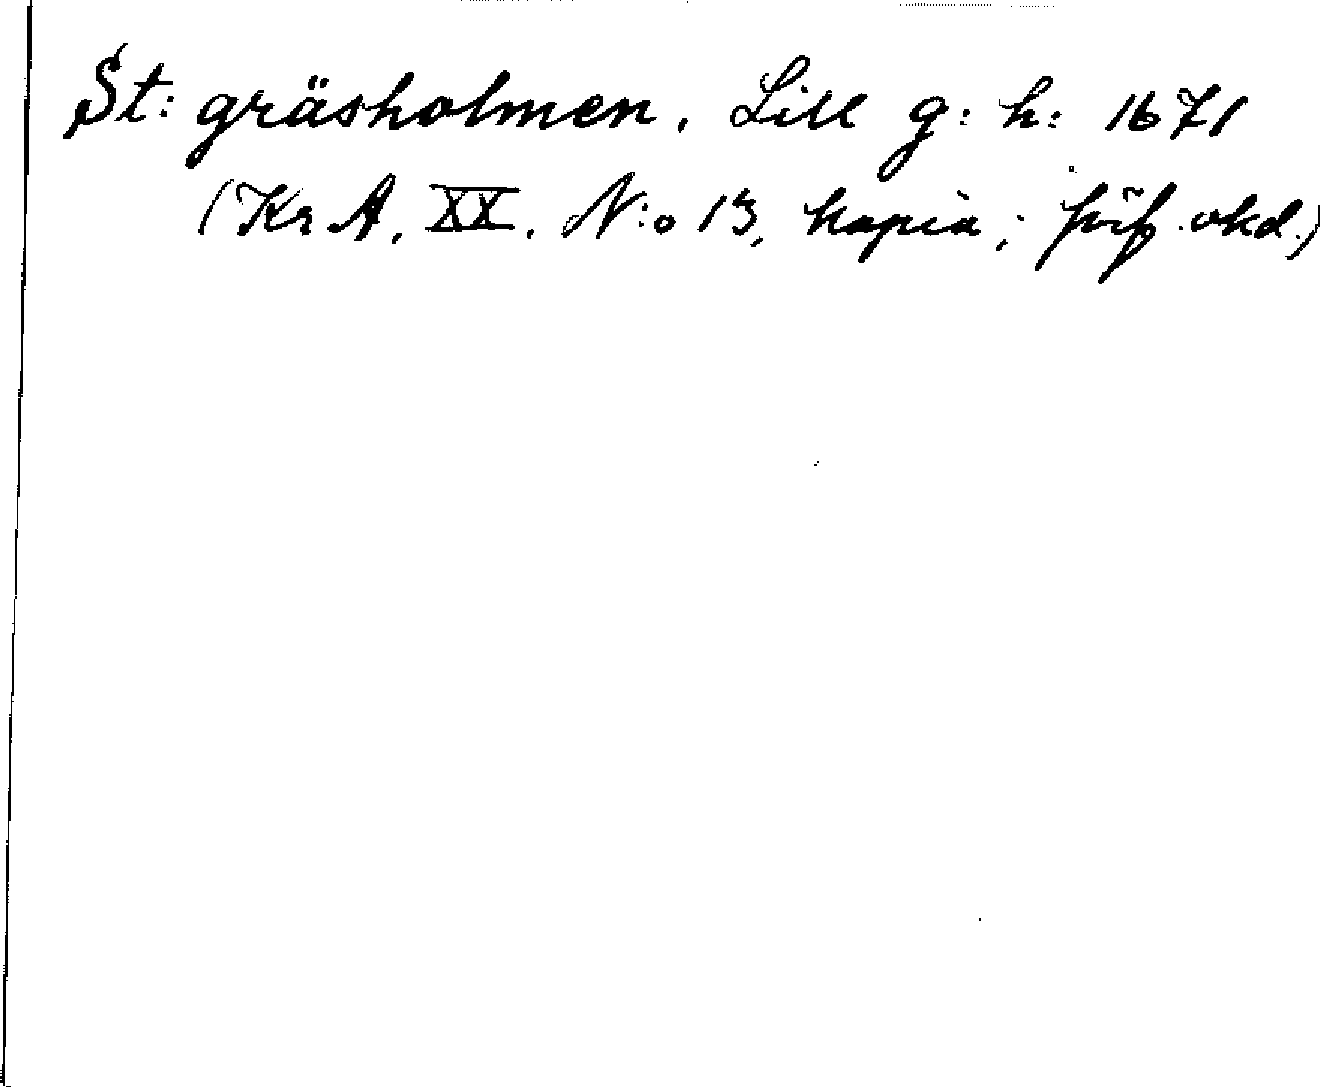 St: gräsholmen, Lill g: h: 1671
(KrA, XX, N:o 13, kopia; förf. okd.)